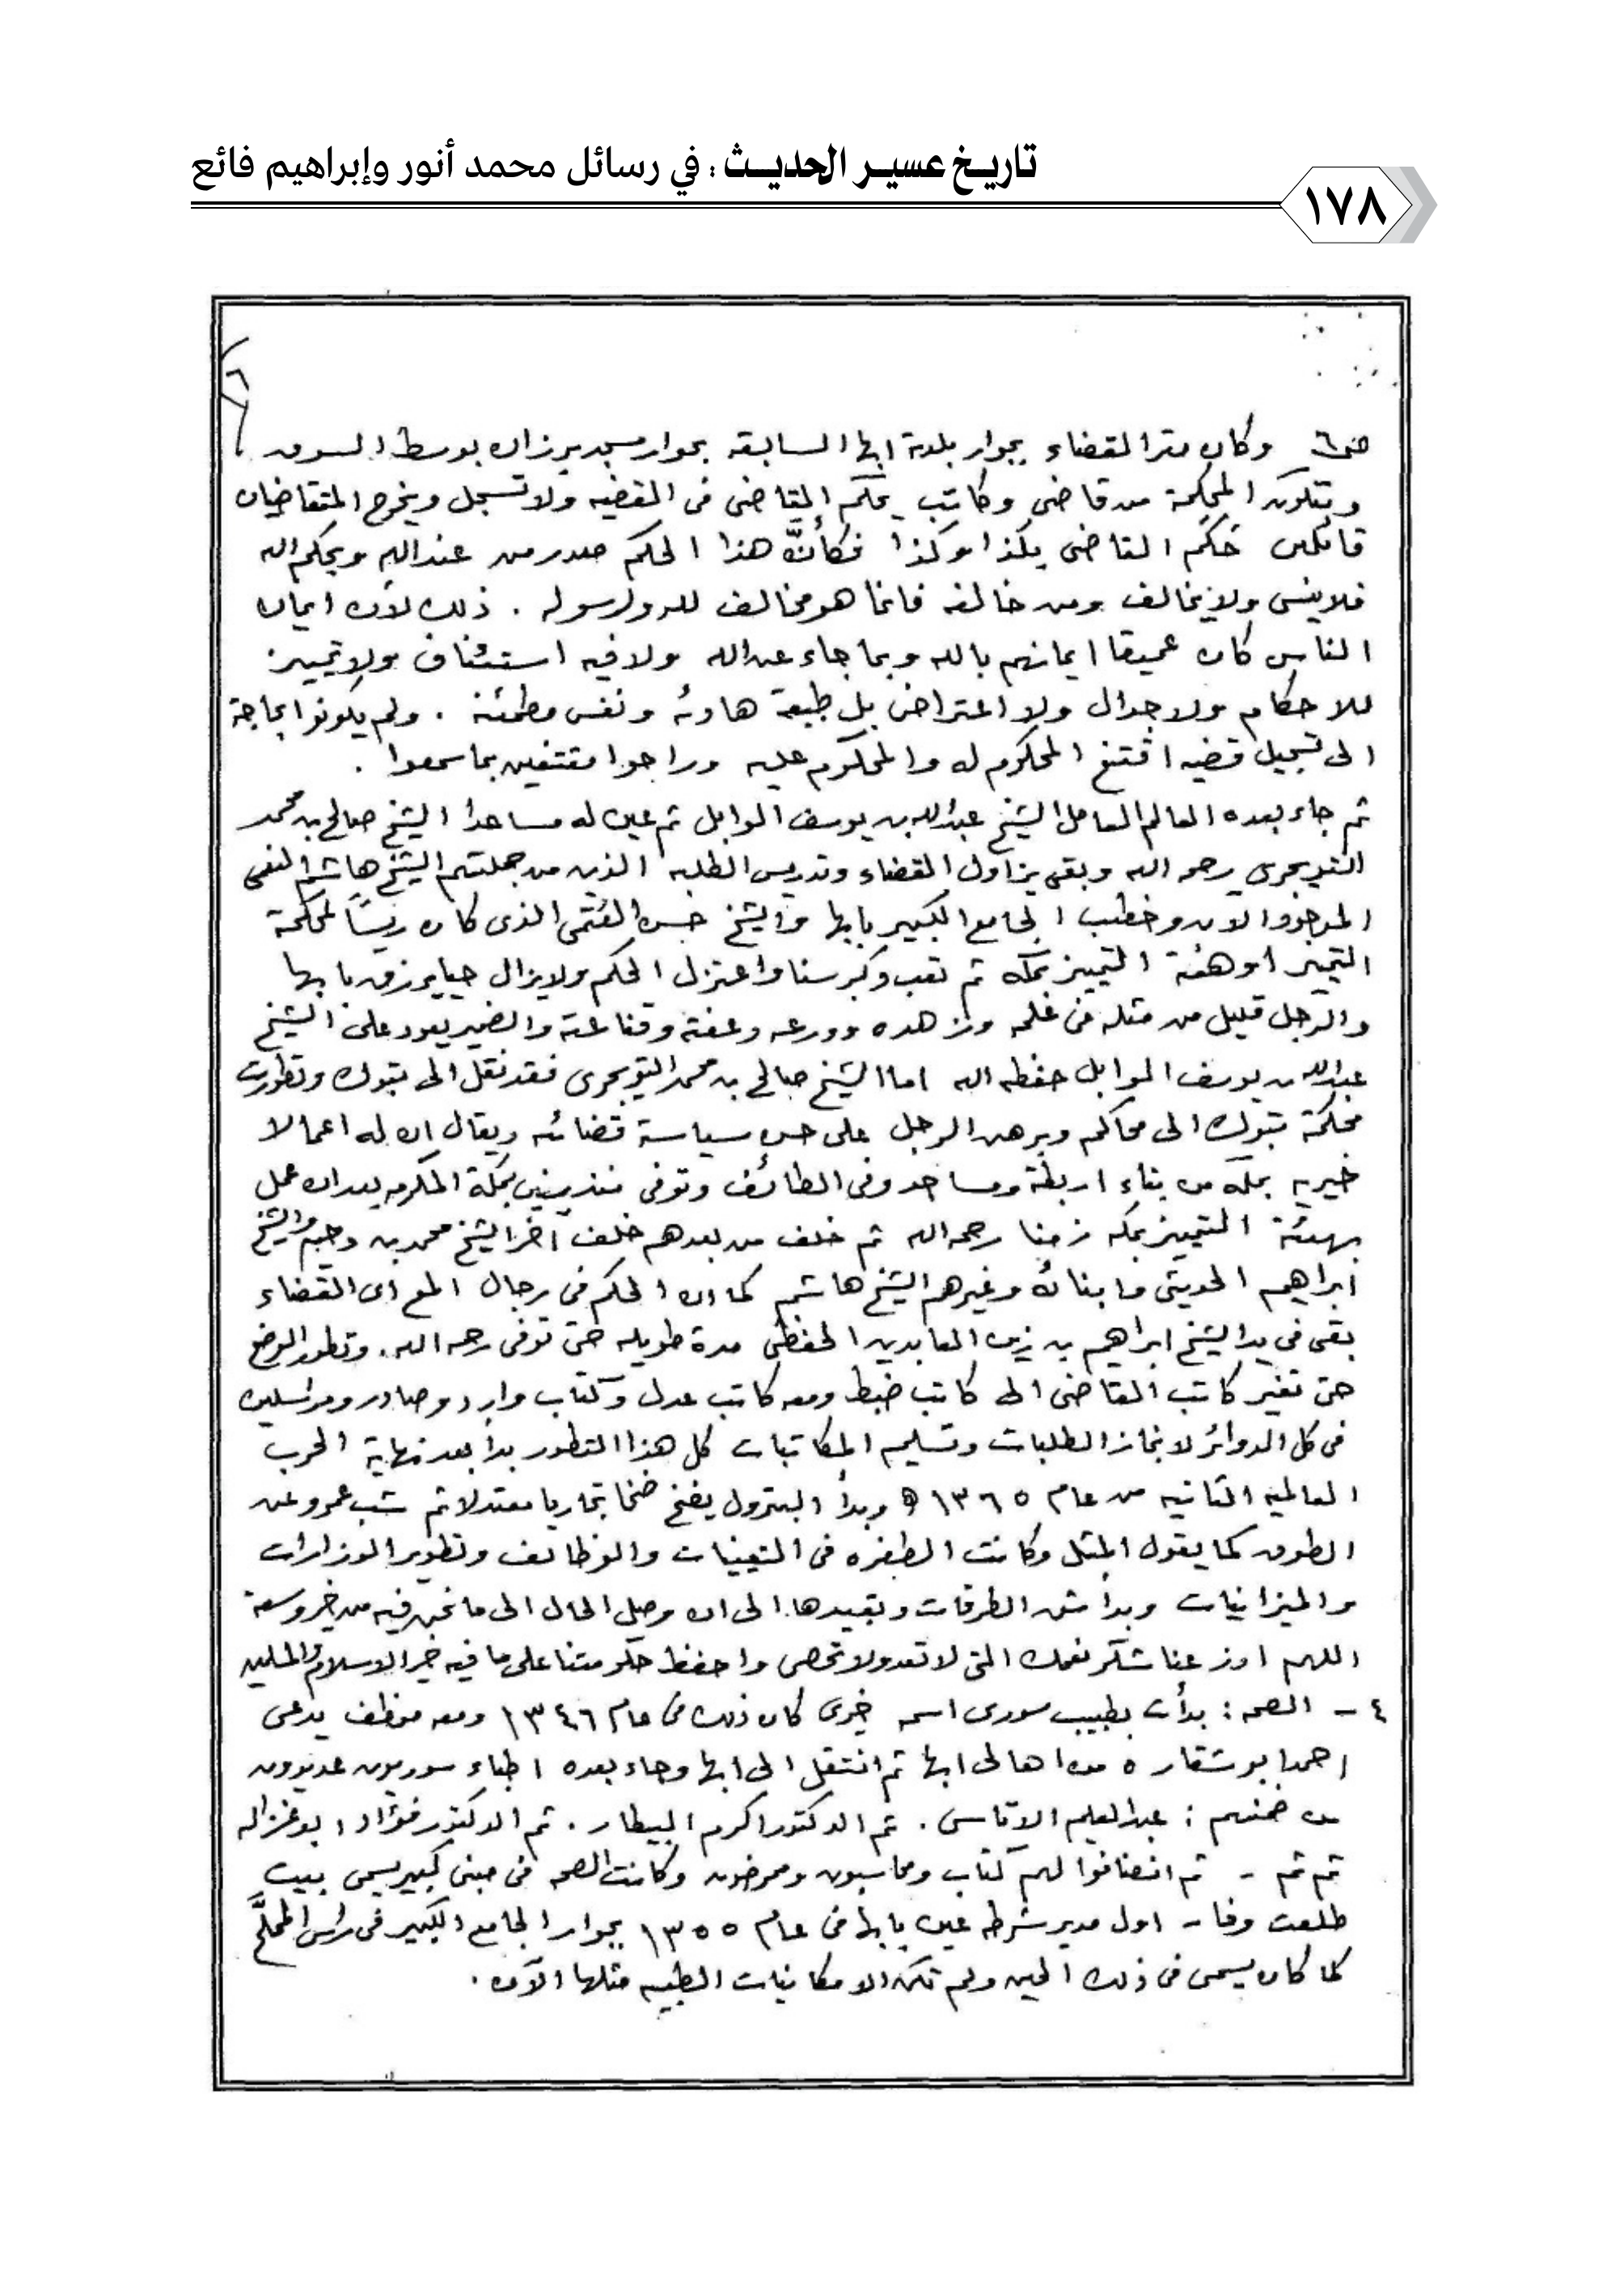 تاريخ عسير الحديث : في رسائل محمد أنور وإبراهيم فائع
١٧٨
٦
ص٦ وكان مقر القضاء بجوار بلدية ابها السابقه بجوار مسجد برزان بوسط السوق
وتتكون المحكمة من قاضي وكاتب يحكم القاضي في القضيه ولا تسجل ويخرج المتقاضيان
قائلين حَكَم القاضي بكذا وكذا فكأنَّ هذا الحكم صدر من عند الله وبحكم الله
فلا ينسى ولا يخالف ومن خالفه فانما هو مخالف لله ولرسوله . ذلك لأن ايمان
الناس كان عميقا ايمانهم بالله وبما جاء عن الله ولا فيه استئناف ولا تمييز
للاحكام ولا جدال ولا اعتراض بل طبيعة هادئه ونفس مطمئنه . ولم يكونوا بحاجة
الى تسجيل قضيه اقتنع المحكوم له والمحكوم عليه وراحوا مقتنعين بما سمعوا .
ثم جاء بعده العالم العامل الشيخ عبدالله بن يوسف الوابل ثم عين له مساعداً الشيخ صالح بن محمد
التويجري رحمه الله وبقى يزاول القضاء وتدريس الطلبه الذين من جملتهم الشيخ هاشم النعمي
الموجود الآن وخطيب الجامع الكبير بابها والشيخ حسن العُتمى الذي كان رئيساً لمحكمة
التمييز او هيئة التمييز بمكه ثم تعب وكبر سنا واعتزل الحكم ولا يزال حيا يرزق بابها
والرجل قليل من مثله في علمه وزهده وورعه وعفته وقناعته والضمير يعود على الشيخ
عبدالله بن يوسف الوابل حفظه الله اما الشيخ صالح بن محمد التويجري فقد نقل الى تبوك وتطورت
محكمة تبوك الى محاكم وبرهن الرجل على حسن سياسة قضائه ويقال ان له اعمالا
خيريه بمكه من بناء اربطة ومساجد وفي الطائف وتوفى منذ سنين بمكة المكرمه بعد ان عمل
بهيئة التمييز بمكه زمنا رحمه الله ثم خلف من بعدهم خلف آخر الشيخ محمد بن والشيخ
ابراهيم الحديثي وابنائه وغيرهم الشيخ هاشم كما ان الحكم في رجال المع اى القضاء
بقى في يد الشيخ ابراهيم بن زين العابدين الحفظي مدة طويله حتى توفى رحمه الله . وتطور الوضع
حتى تغير كاتب القاضي الى كاتب ضبط ومعه كاتب عدل وكتاب وارد وصادر ومراسلين
في كل الدوائر لانجاز الطلبات وتسليم المكاتبات كل هذا التطور بدأ بعد نهاية الحرب
العالميه الثانيه من عام ١٣٦٥ ه وبدأ البترول يضخ ضخا تجاريا معتدلا ثم شب عمرو عن
الطوق كما يقول المثل وكانت الطفره في التعيينات والوظائف وتطوير الوزارات
والميزانيات وبدأ شق الطرقات وتعبيدها الى ان وصل الحال الى ما نحن فيه من خير وسعة
اللهم اوزعنا شكر نعمك التي لا تعد ولا تحصى واحفظ حكومتنا على ما فيه خير الاسلام والمسلمين
٤ - الصحه : بدأت بطبيب سوري اسمه خيري كان ذلك في عام ١٣٤٦ ومعه موظف يدعى
احمد ابو شقاره من اهالى ابها ثم انتقل الى ابها وجاء بعده اطباء سوريون عديدون
من ضمنهم : عبدالعليم الاتاسى . ثم الدكتور اكرم البيطار . ثم الدكتور فؤاد ابو غزاله
ثم ثم - ثم انضافوا لهم كتاب ومحاسبون وممرضون وكانت الصحه في مبنى كبير يسمى بيت
طلعت وفا - اول مدير شرطه عين بابها في عام ١٣٥٥ بجوار الجامع الكبير في راس المملَّح
كما كان يسمى في ذلك الحين ولم تكن الامكانيات الطبيه مثلها الآن .